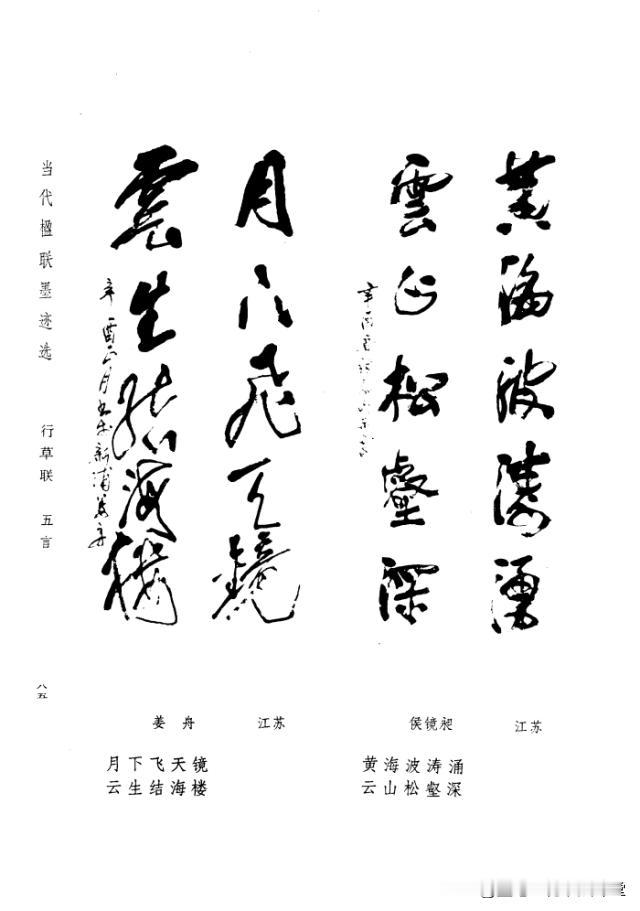 黄海波涛涌
雲山松壑深
月下飞天镜
雲生结海楼
辛酉二月书于新浦姜舟
当代楹联墨迹选 行草联 五言
八五
江苏
侯镜昶
黄海波涛涌
云山松壑深
江苏
姜舟
月下飞天镜
云生结海楼